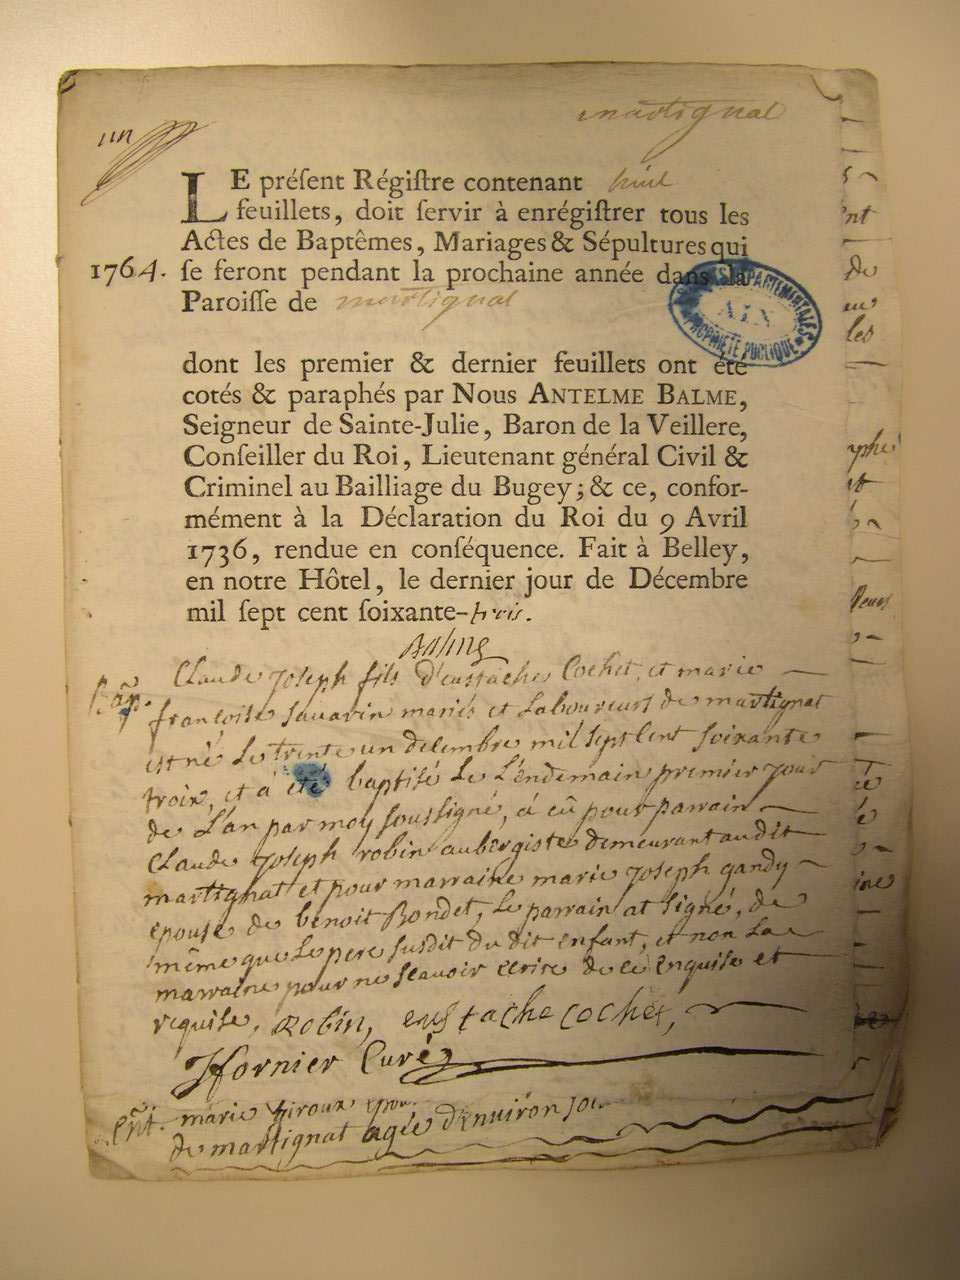 un
martignat
LE préſent Régiſtre contenant huit
feuillets, doit ſervir à enrégiſtrer tous les
Actes de Baptêmes, Mariages & Sépultures qui
1764. ſe feront pendant la prochaine année dans la
Paroiſſe de martignat
ARCHIVES DÉPARTEMENTALES
AIN
PROPRIÉTÉ PUBLIQUE
dont les premier & dernier feuillets ont été
cotés & paraphés par Nous ANTELME BALME,
Seigneur de Sainte-Julie, Baron de la Veillere,
Conſeiller du Roi, Lieutenant général Civil &
Criminel au Bailliage du Bugey; & ce, confor-
mément à la Déclaration du Roi du 9 Avril
1736, rendue en conſéquence. Fait à Belley,
en notre Hôtel, le dernier jour de Décembre
mil ſept cent ſoixante-trois.
Balme
Bap. Claude Joseph fils d'eustache Cochet, et marie
françoise savarin mariés et Laboureurs de martignat
est né Le trente un decembre mil sept Cent soixante
troix, et à été baptisé Le L'endemain premier jour
de L'an par moy soussigné, à eû pour parrain
Claude Joseph robin aubergiste demeurant au dit
martignat et pour marraine marie Joseph gandy
epouse de benoit Bondet, Le parrain at signé, de
même que Le pere susdit du dit enfant, et non La
marraine pour ne scavoir ecrire de ce Enquise et
requise. Robin, eustache cochet,
Hornier Curé
Ent. marie epou
de martignat agée d'environ soi